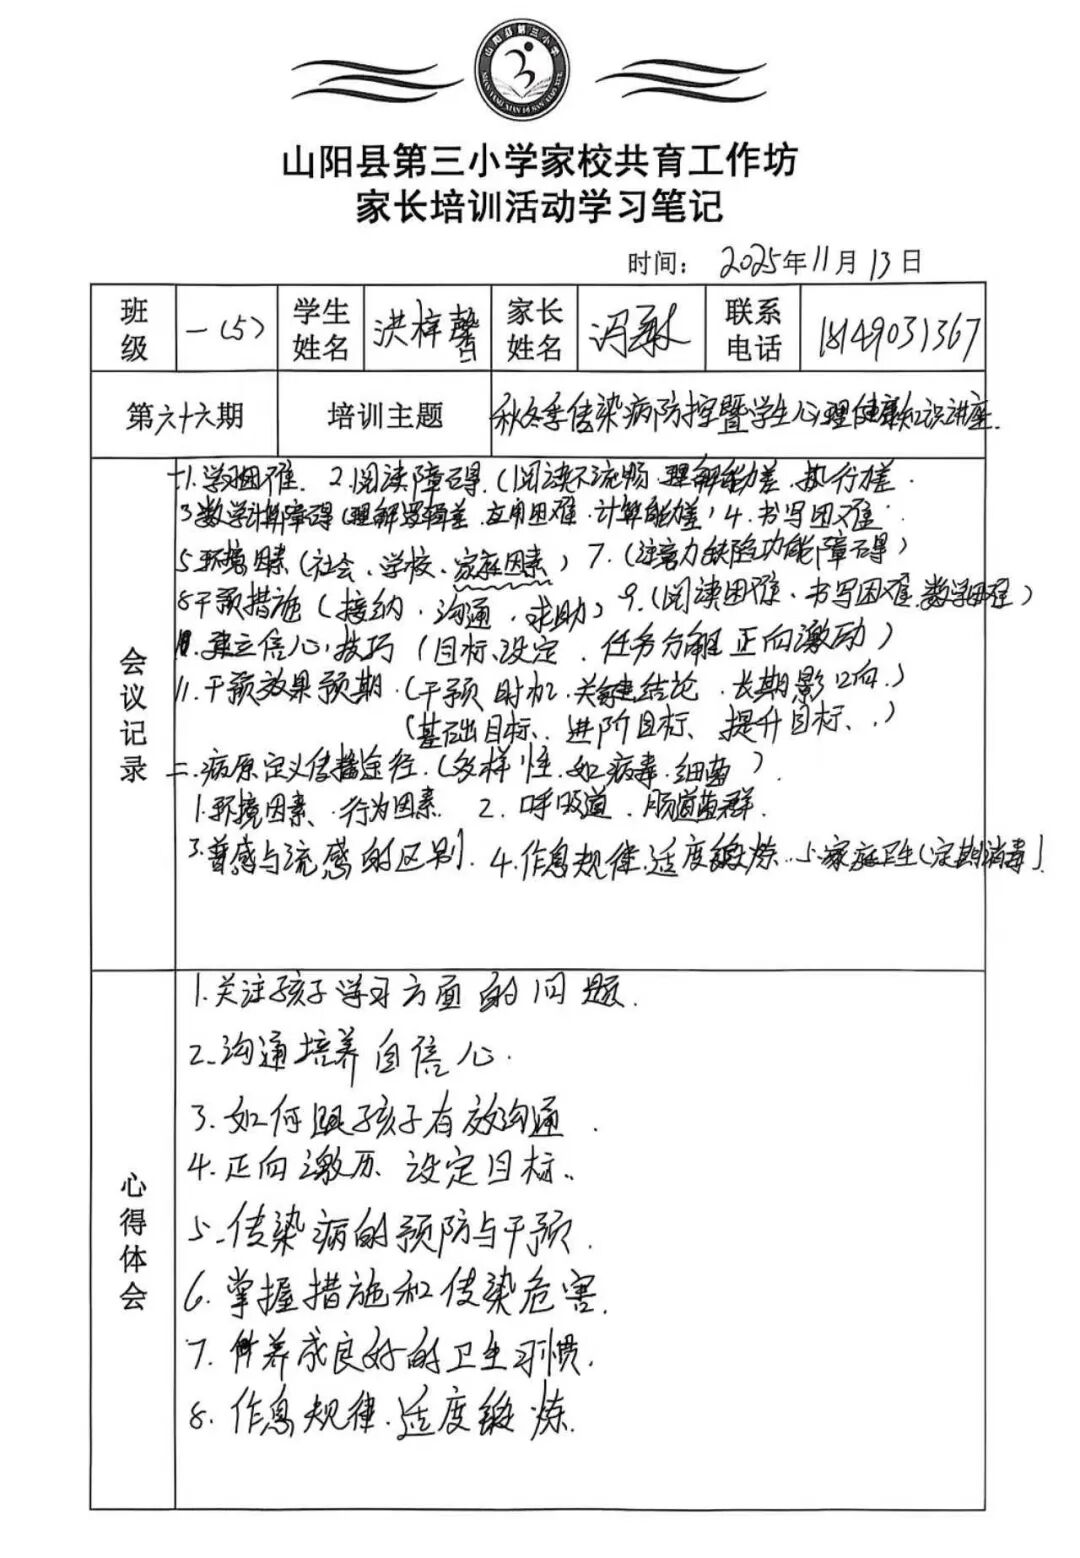 山阳县第三小学
SHAN YANG XIAN DI SAN XIAO XUE
山阳县第三小学家校共育工作坊
家长培训活动学习笔记
时间： 2025年11月13日
班级 一（5） 学生姓名 洪梓馨 家长姓名 冯敏 联系电话 18149031367
第六十六期 培训主题 秋冬季传染病防控暨学生心理健康知识讲座.
会议记录
一.1.学习困难. 2.阅读障碍.(阅读不流畅.理解能力差.执行差.
3.数学计算障碍(理解逻辑差.应用困难.计算能力差) 4.书写困难.
5.环境因素(社会、学校、家庭因素) 7.(注意力缺陷功能障碍)
8.干预措施(接纳.沟通.求助) 9.(阅读困难、书写困难.数学困难)
10.建立信心,技巧(目标设定.任务分解 正向激励)
11.干预效果预期.(干预时机.关键结论.长期影响.)
(基础目标、进阶目标、提升目标、.)
二.病原定义传播途径.(多样性.如病毒.细菌).
1.环境因素、行为因素 2.呼吸道.肠道菌群.
3.普感与流感的区别. 4.作息规律.适度锻炼. 5.家庭卫生(定期消毒).
心得体会
1.关注孩子学习方面的问题.
2.沟通培养自信心.
3.如何跟孩子有效沟通.
4.正向激历、设定目标.
5.传染病的预防与干预.
6.掌握措施和传染危害.
7.养成良好的卫生习惯.
8.作息规律.适度锻炼.